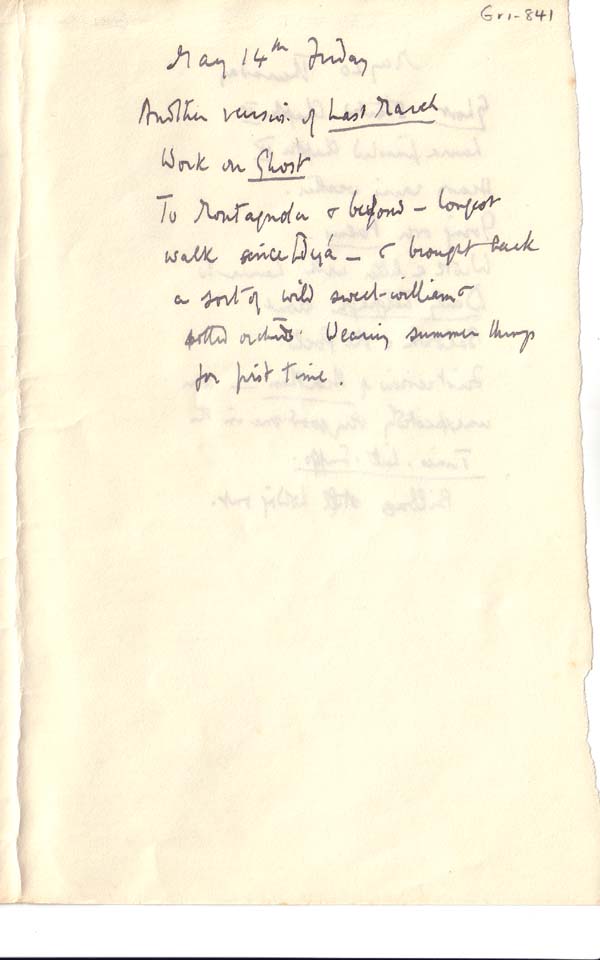 Gr1-841
May 14th Friday
Another version of Last March
Work on Ghost
To Montagnola & beyond – longest
walk since Deyá – & brought back
a sort of wild sweet-william &
orchids. Wearing summer things
for first time.